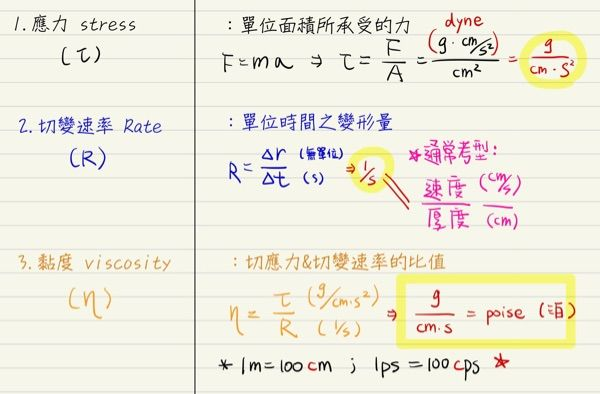 1. 應力 stress
(τ)
：單位面積所承受的力
F=ma ⇒ τ = F/A = dyne (g·cm/s²)/cm² = g/cm·s²
2. 切變速率 Rate
(R)
：單位時間之變形量
R = Δr/Δt (無單位)/(s) ⇒ 1/s
*通常考型：
速度/厚度 (cm/s)/(cm)
3. 黏度 viscosity
(η)
：切應力&切變速率的比值
η = τ/R (g/cm·s²)/(1/s) ⇒ g/cm·s = poise (泊)
* 1m=100cm ； 1ps=100cps *